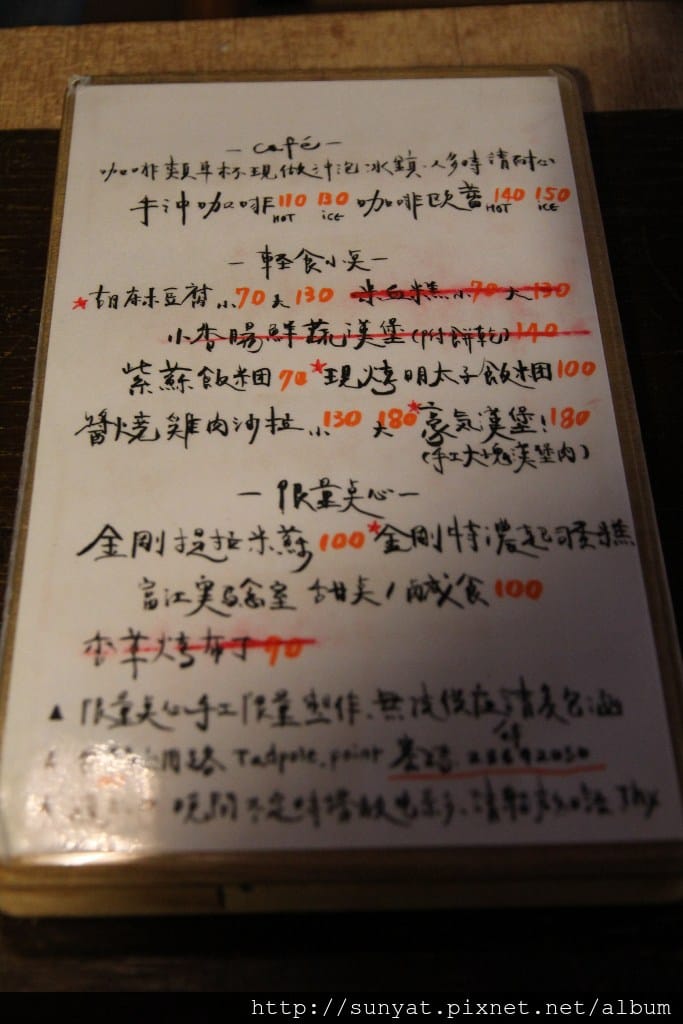 — café —
咖啡類單杯現做沖泡冰鎮.人多時請耐心
手沖咖啡 110 HOT 130 ICE 咖啡歐蕾 140 HOT 150 ICE
— 軽食小点 —
★胡麻豆腐 小70 大130 米血糕 小70 大130
小香腸鮮蔬漢堡(附餅乾)140
紫蘇飯糰 70 ★現烤明太子飯糰 100
醬燒雞肉沙拉 小130 大180 ★豪氣漢堡! 180
(手工大塊漢堡肉)
— 限量点心 —
金剛提拉米蘇 100 ★金剛特濃起司蛋糕
富江實驗室 甜点/鹹食 100
香草烤布丁 90
▲ 限量点心手工限量製作、無法供应請多包涵
網路 Tadpole.point 基隆 or 28692050
晚間不定時播放音樂、請輕声細語 Thx
http://sunyat.pixnet.net/album